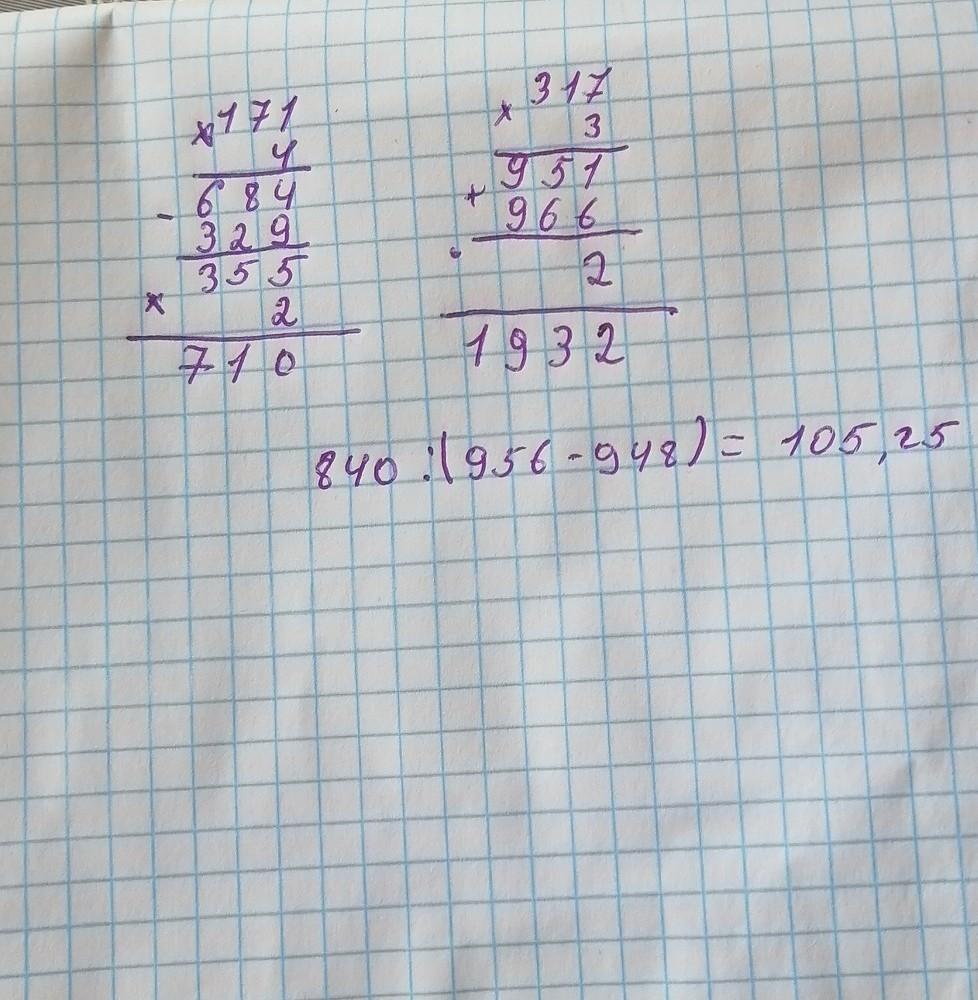 × 171
4
- 684
329
355
× 2
710
× 317
3
951
+ 966
. 2
1932
840 : (956 - 948) = 105,25